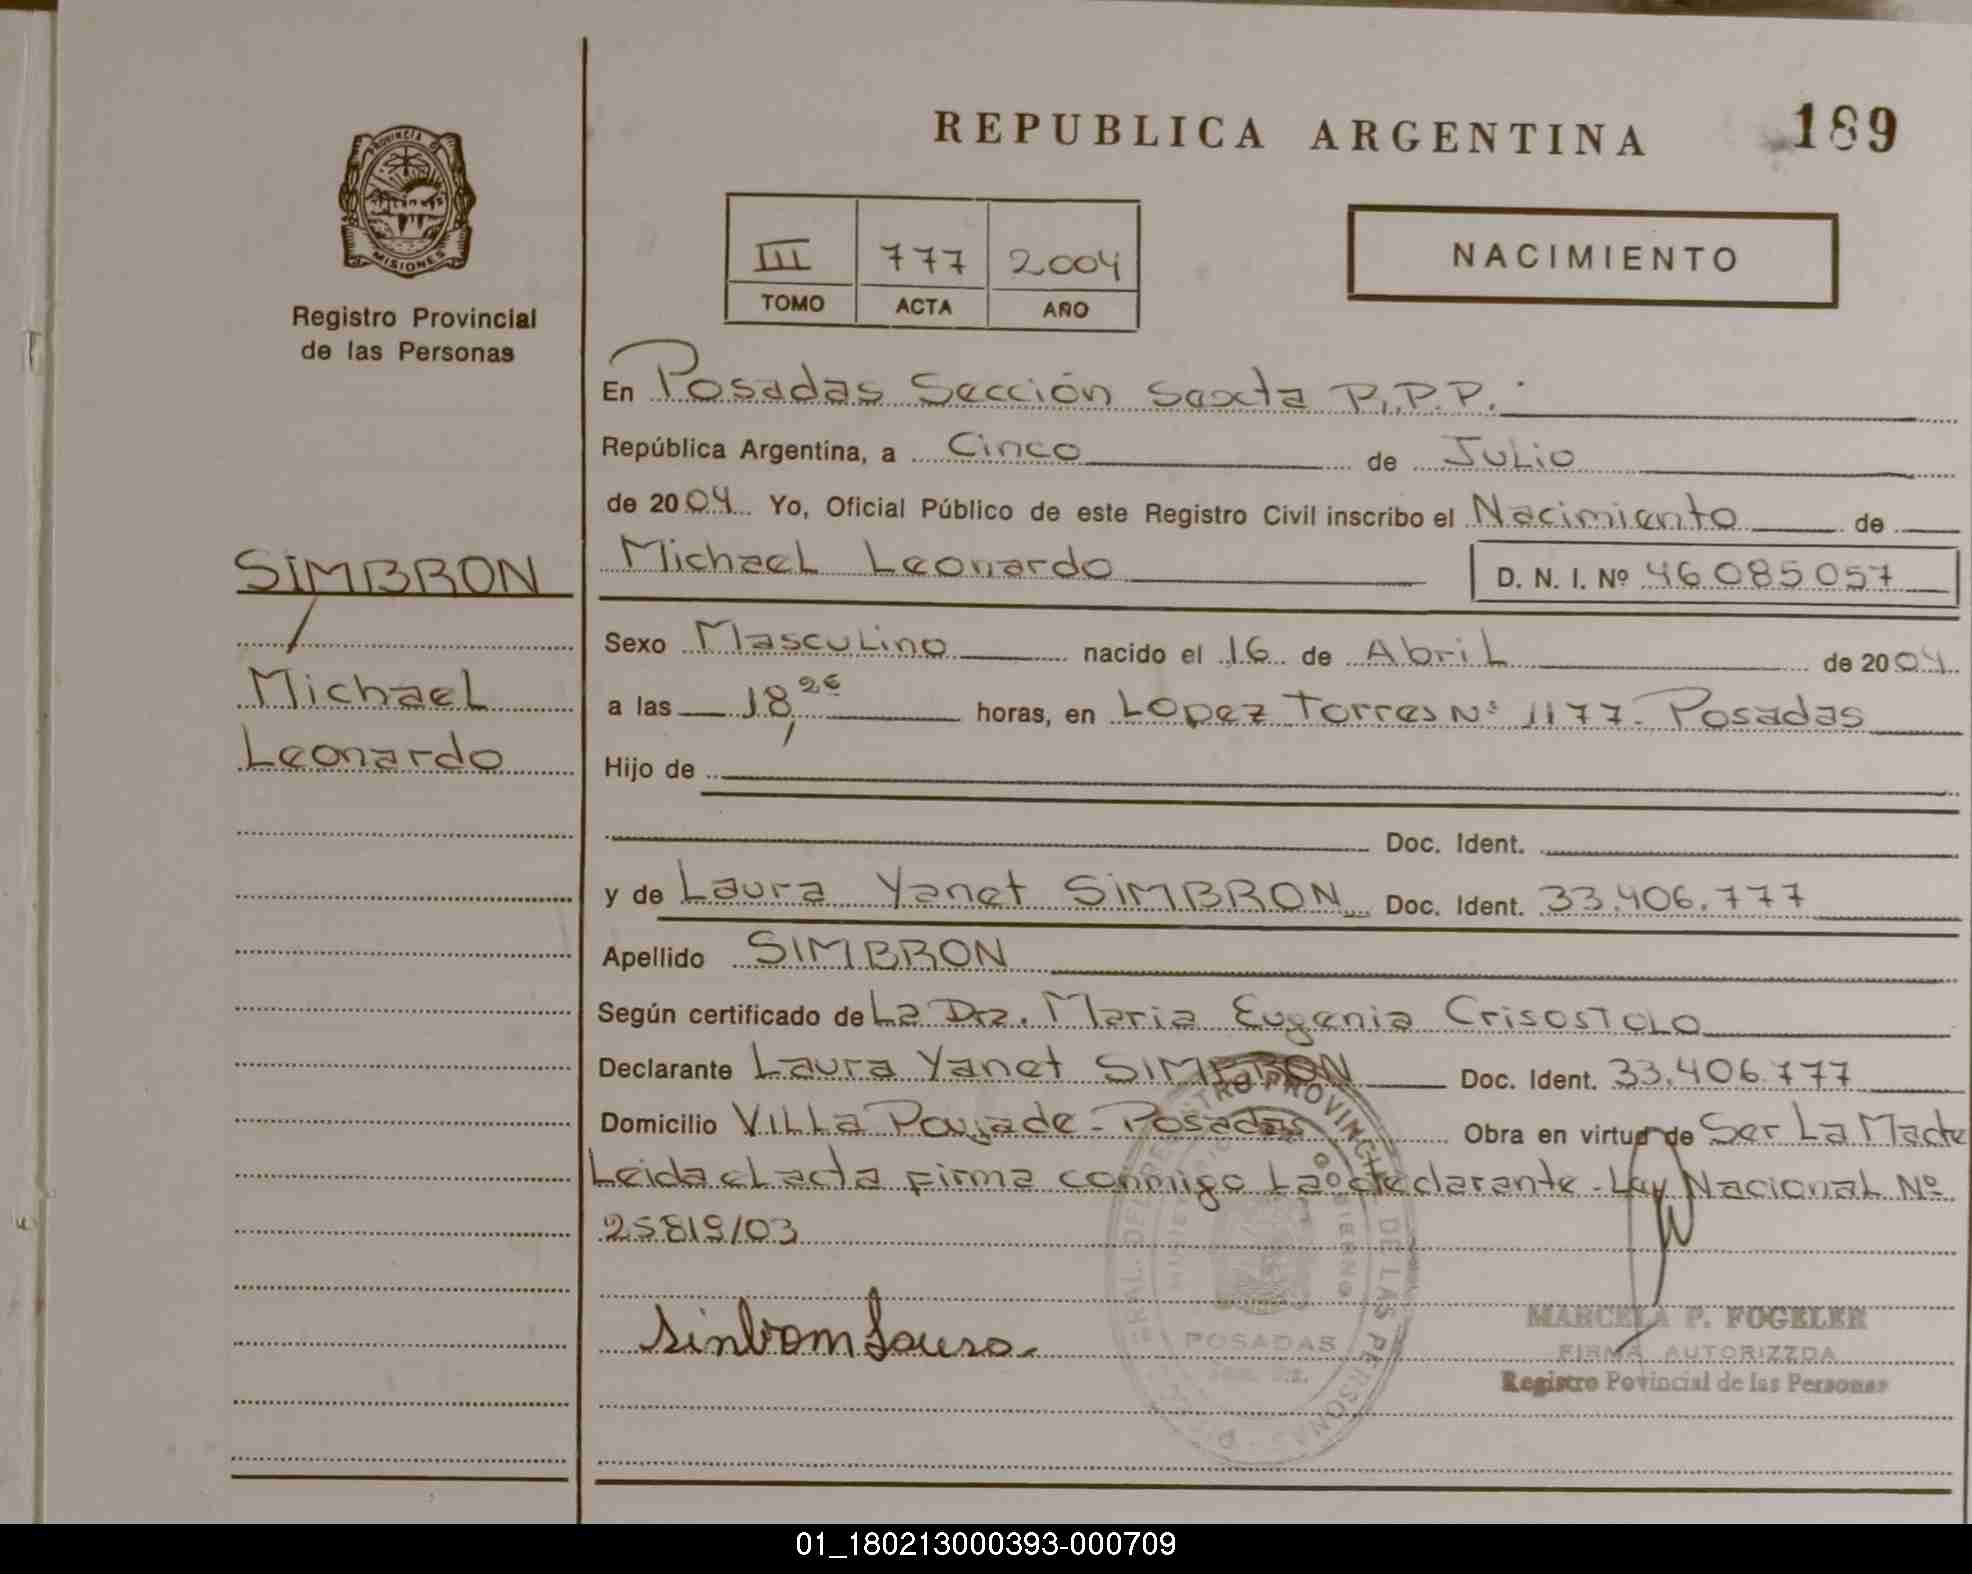 PROVINCIA DE
MISIONES
Registro Provincial
de las Personas
SIMBRON
Michael
Leonardo
REPUBLICA ARGENTINA
189
III 777 2004
TOMO ACTA AÑO
NACIMIENTO
En Posadas Sección Sexta P.P.P.
República Argentina, a Cinco de Julio
de 2004 Yo, Oficial Público de este Registro Civil inscribo el Nacimiento de
Michael Leonardo D. N. I. Nº 46.085.057
Sexo Masculino nacido el 16 de Abril de 2004
a las 18, horas, en Lopez Torres Nº 1177- Posadas
Hijo de
Doc. Ident.
y de Laura Yanet SIMBRON Doc. Ident. 33.406.777
Apellido SIMBRON
Según certificado de La Dra. Maria Eugenia Crisostolo
Declarante Laura Yanet SIMBRON Doc. Ident. 33.406.777
Domicilio Villa Poujade - Posadas Obra en virtud de Ser La Madre
Leida el acta firma conmigo La declarante - Ley Nacional Nº
25819/03
Sinbrom Laura
POSADAS
MARCELA P. FOGELER
FIRMA AUTORIZZDA
Registro Povincial de las Personas
01_180213000393-000709